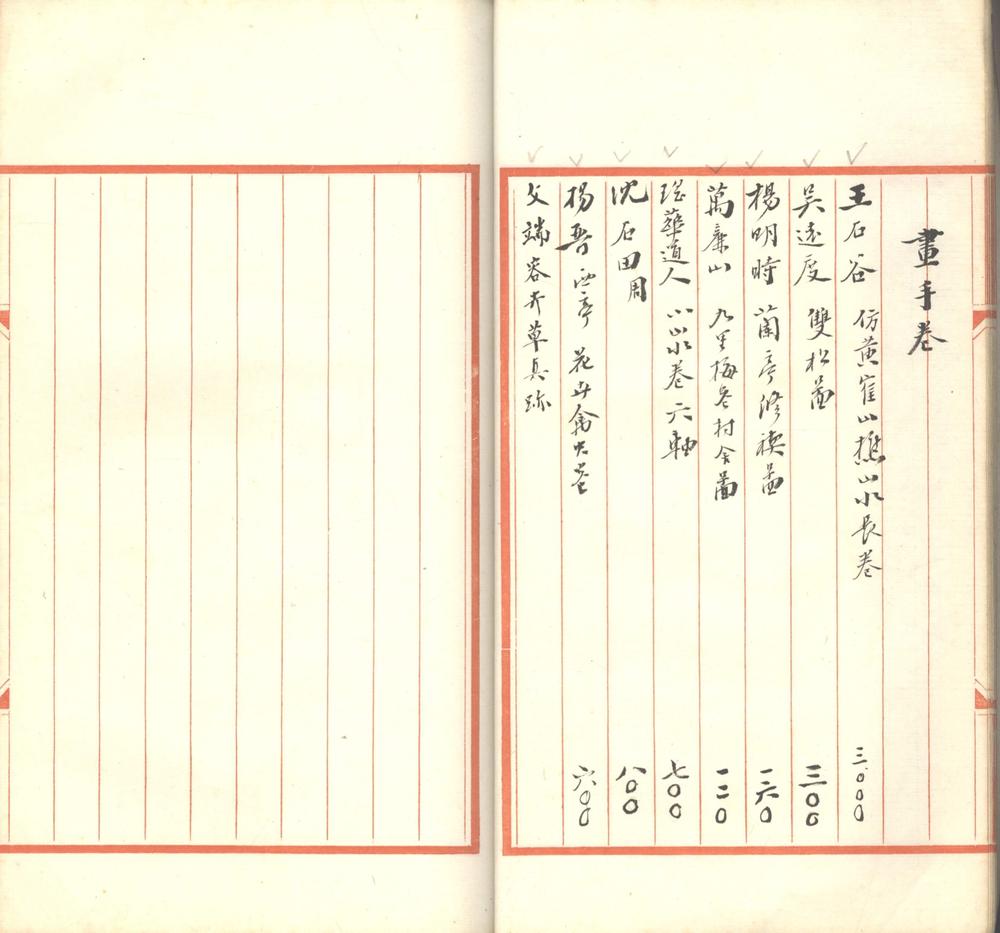 畫手卷
王石谷 仿黃寉山樵山水長卷 三、〇〇〇
吴遠度 雙松啚 三〇〇
楊明時 蘭亭修禊啚 一六〇
萬廉山 九里梅花村舍圖 一二〇
瑤華道人 小山水卷六軸 七〇〇
沈石田周 八〇〇
楊晉西亭 花卉禽虫卷 六〇〇
文端容卉草真跡